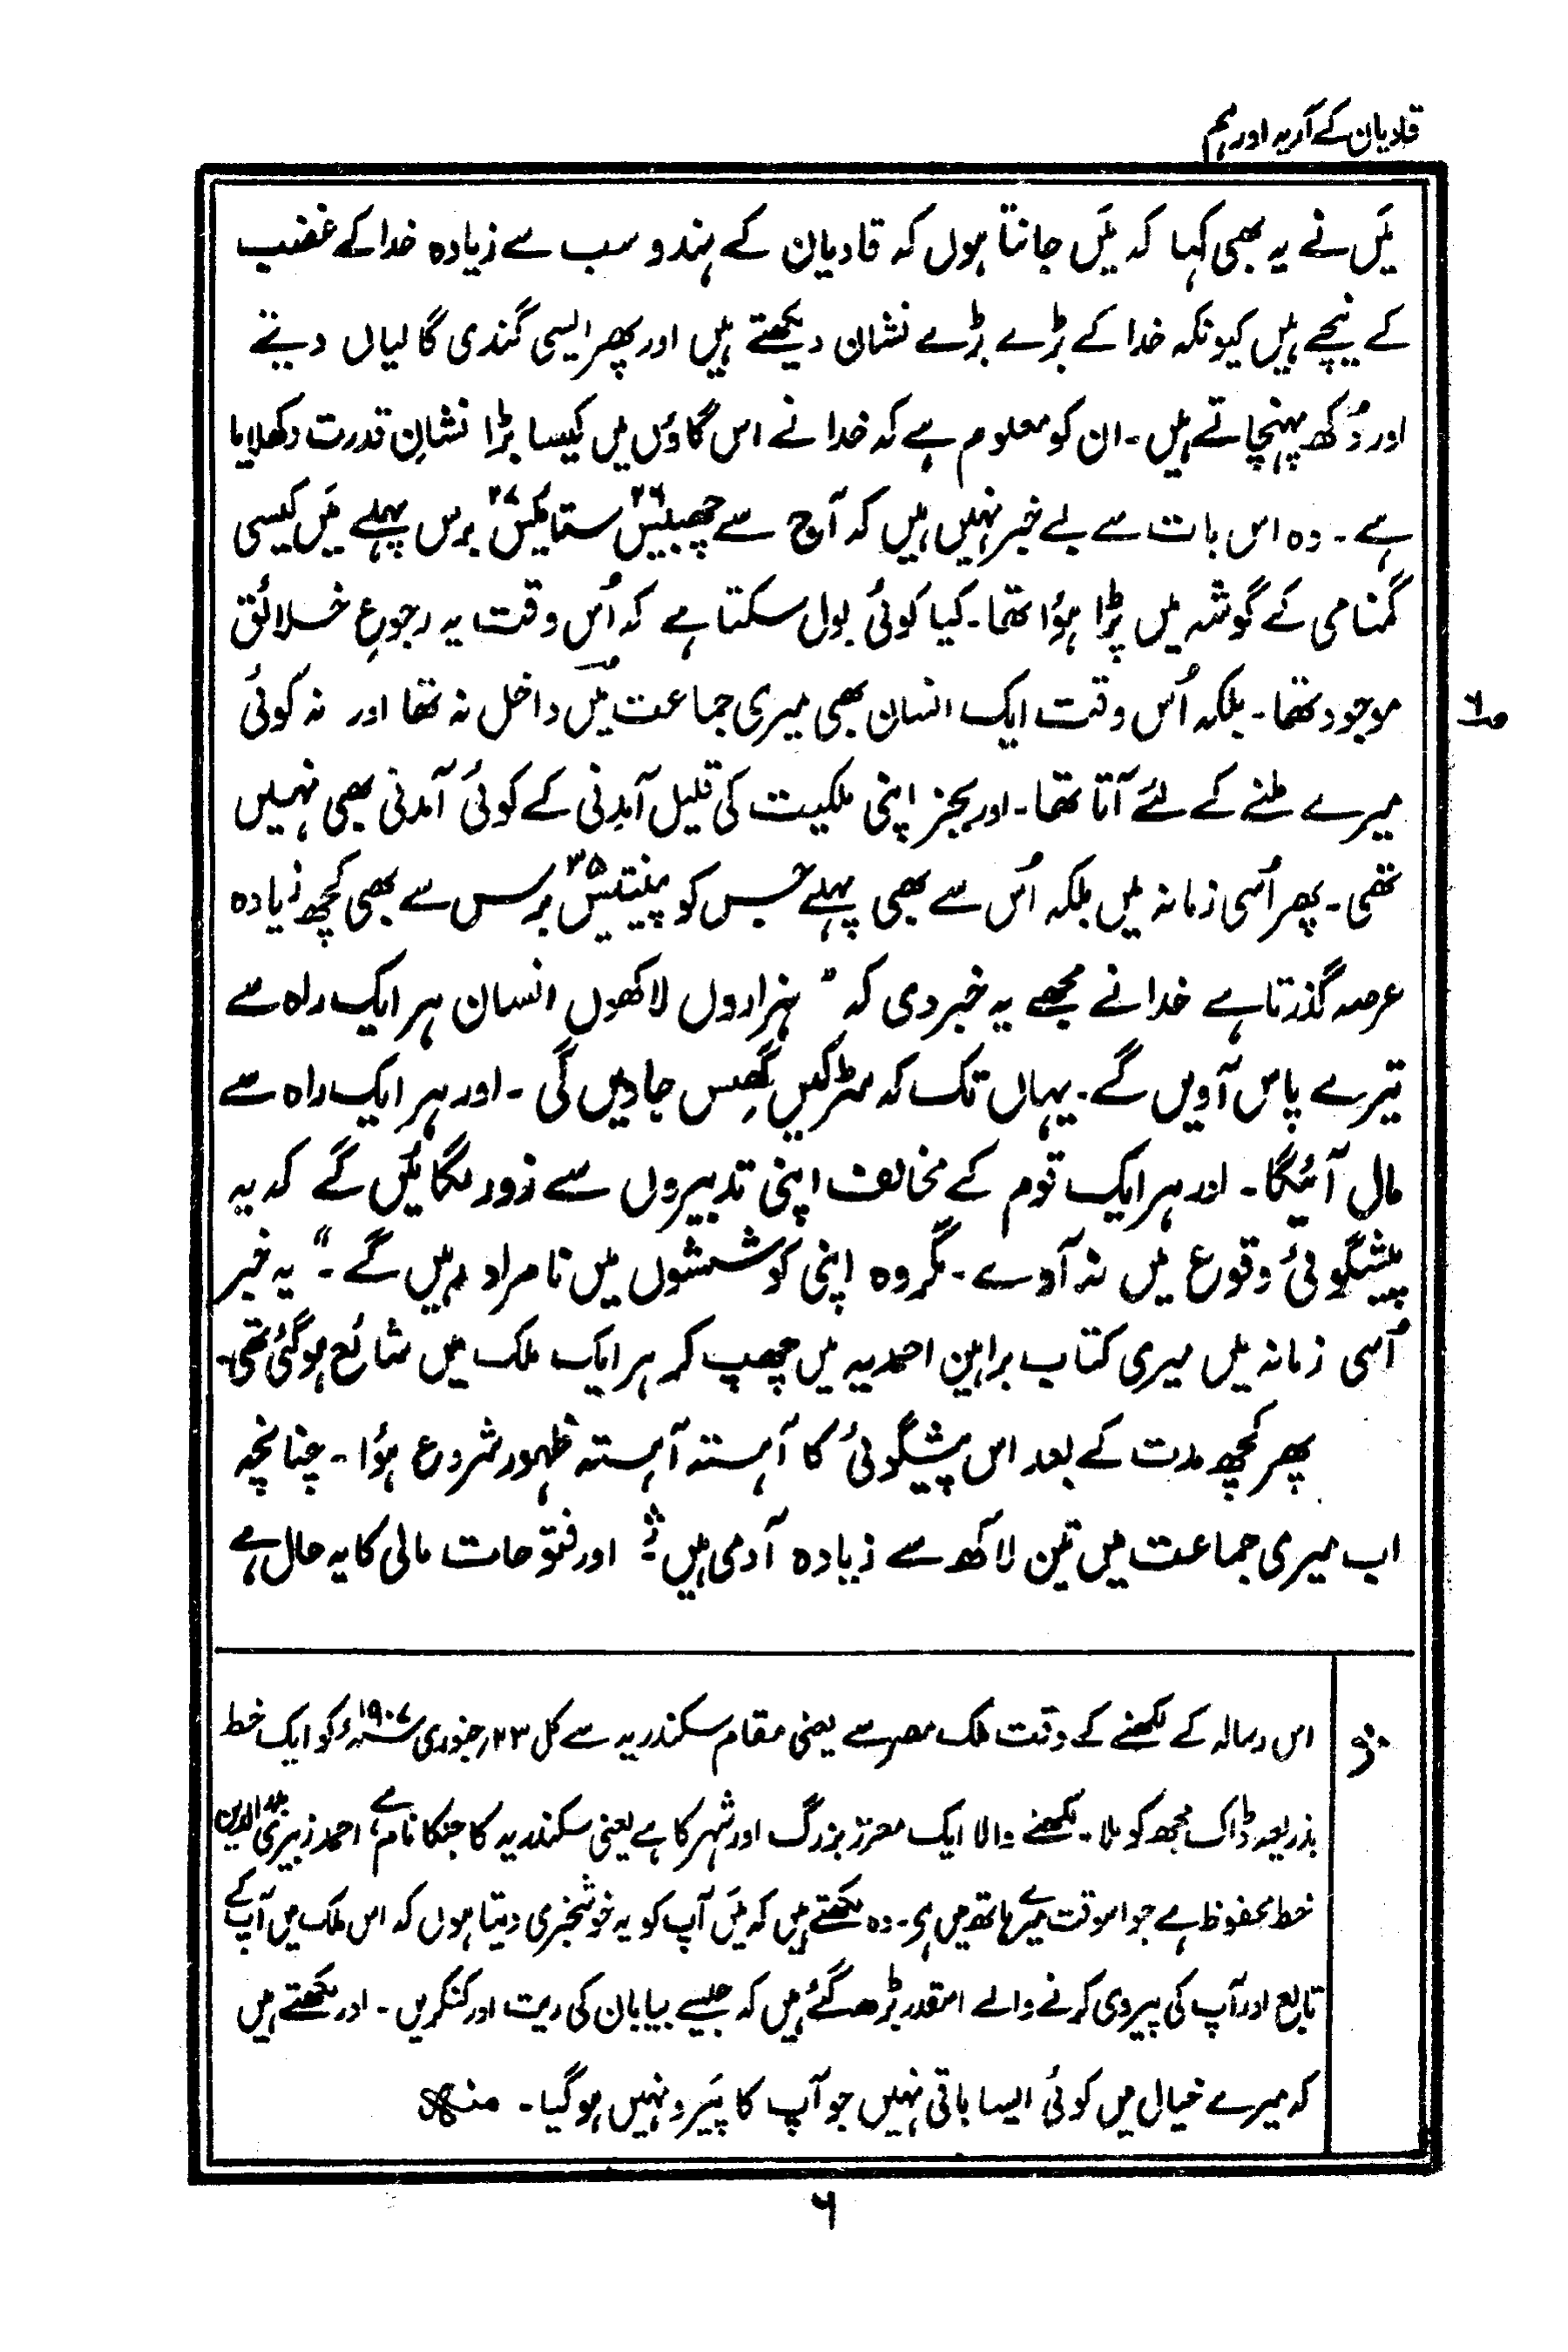 قادیان کے آریہ اور ہم
مَیں نے یہ بھی کہا کہ مَیں جانتا ہوں کہ قادیان کے ہندو سب سے زیادہ خدا کے غضب
کے نیچے ہیں کیونکہ خدا کے بڑے بڑے نشان دیکھتے ہیں اور پھر ایسی گندی گالیاں دیتے
اور دُکھ پہنچاتے ہیں۔ ان کو معلوم ہے کہ خدا نے اس گاؤں میں کیسا بڑا نشانِ قدرت دکھلایا
ہے۔ وہ اس بات سے بے خبر نہیں ہیں کہ آج سے چھبیس۲۶ ستائیس۲۷ برس پہلے مَیں کیسی
گمنامی کے گوشہ میں پڑا ہؤا تھا۔ کیا کوئی بول سکتا ہے کہ اُس وقت یہ رجوعِ خلائق
موجود تھا۔ بلکہ اُس وقت ایک انسان بھی میری جماعت میں داخل نہ تھا اور نہ کوئی
ص۶
میرے ملنے کے لئے آتا تھا۔ اور بجز اپنی ملکیت کی قلیل آمدنی کے کوئی آمدنی بھی نہیں
تھی۔ پھر اُسی زمانہ میں بلکہ اُس سے بھی پہلے جس کو پینتیس۳۵ برس سے بھی کچھ زیادہ
عرصہ گذرتا ہے خدا نے مجھے یہ خبر دی کہ " ہزاروں لاکھوں انسان ہر ایک راہ سے
تیرے پاس آویں گے۔ یہاں تک کہ سڑکیں گھِس جاویں گی۔ اور ہر ایک راہ سے
مال آئیگا۔ اور ہر ایک قوم کے مخالف اپنی تدبیروں سے زور لگائیں گے کہ یہ
پیشگوئی وقوع میں نہ آوے۔ مگر وہ اپنی کوششوں میں نامراد رہیں گے۔" یہ خبر
اُسی زمانہ میں میری کتاب براہین احمدیہ میں چھپ کر ہر ایک ملک میں شائع ہوگئی تھی۔
پھر کچھ مدت کے بعد اس پیشگوئی کا آہستہ آہستہ ظہور شروع ہؤا۔ چنانچہ
اب میری جماعت میں تین لاکھ سے زیادہ آدمی ہیں۔ اور فتوحات مالی کا یہ حال ہے
اس رسالہ کے لکھنے کے وقت ملک مصر سے یعنی مقام سکندریہ سے کل ۲۳؍جنوری ۱۹۰۷ء کو ایک خط
بذریعہ ڈاک مجھ کو ملا۔ لکھنے والا ایک معزز بزرگ اور شہر کا ہے یعنی سکندریہ کا جنکا نام ہے احمد زہری بدر الدین
خط محفوظ ہے جو اسوقت میرے ہاتھ میں ہی۔ وہ لکھتے ہیں کہ مَیں آپ کو یہ خوشخبری دیتا ہوں کہ اس ملک میں آپ کے
تابع اور آپ کی پیروی کرنے والے اسقدر بڑھ گئے ہیں کہ جیسے بیابان کی ریت اور کنکریں۔ اور لکھتے ہیں
کہ میرے خیال میں کوئی ایسا باقی نہیں جو آپ کا پَیرو نہیں ہو گیا۔ منہ
۶